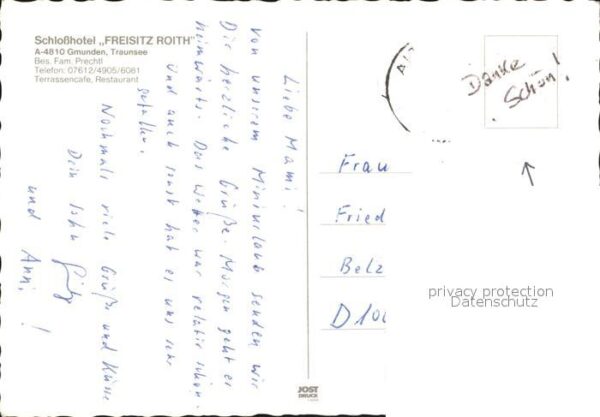 Schloßhotel „FREISITZ ROITH"
A-4810 Gmunden, Traunsee
Bes. Fam. Prechtl
Telefon: 07612/4905/6081
Terrassencafe, Restaurant
Liebe Mami!
Von unserem Miniurlaub senden wir
Dir herzliche Grüße. Morgen geht es
heimwärts. Das Wetter war relativ schön.
Und auch sonst hat es uns sehr
gefallen.
Nochmals viele Grüße und Küsse
Dein Sohn
und Anni!
Danke
Schön!
Frau
Fried
Belz
D 100
privacy protection
Datenschutz
JOST
DRUCK